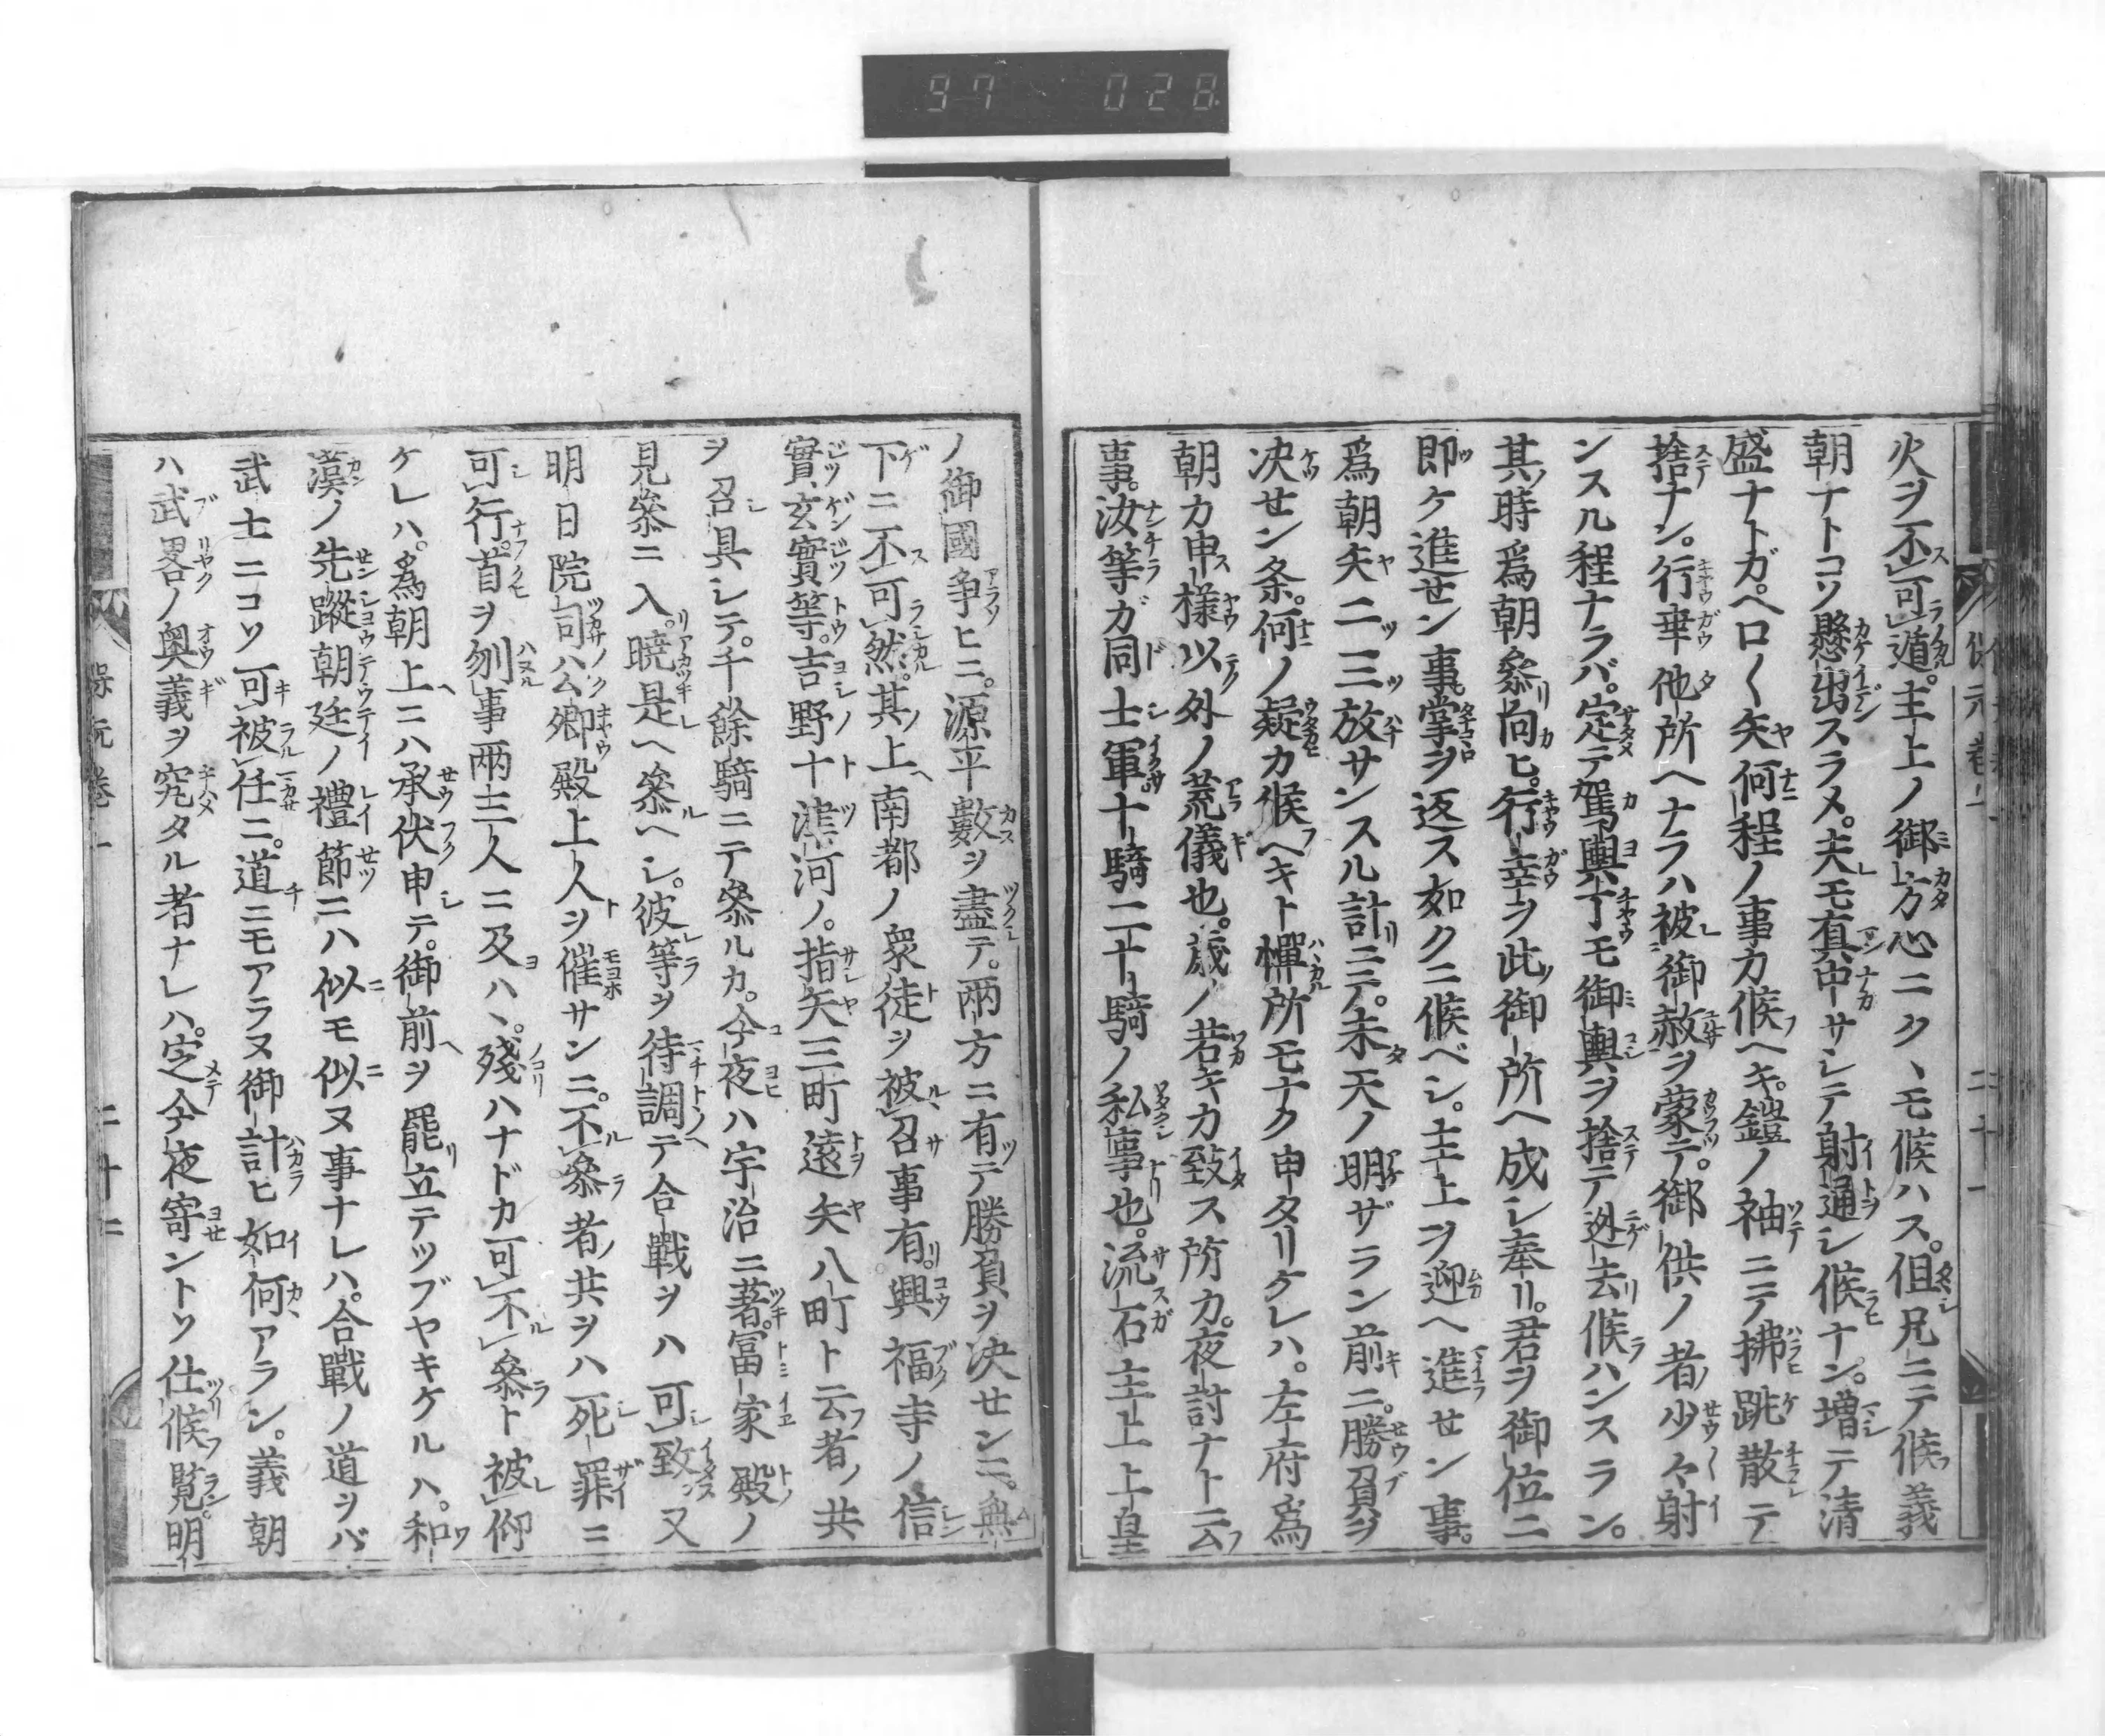 97 028
火ヲ不可遁。主上ノ御方心ニク丶モ候ハス。但兄ニテ候義
朝ナトコソ懸出スラメ。夫モ真中サシテ射通シ候ナン。増テ清
盛ナトガ。ヘロ〱矢何程ノ事カ候ヘキ。鎧ノ袖ニテ拂跳散テ
捨ナン。行幸他所ヘナラハ被御赦ヲ蒙テ。御供ノ者少々射
ンスル程ナラバ。定テ駕輿丁モ御輿ヲ捨テ迯去候ハンスラン。
其時為朝參向ヒ。行幸ヲ此御所ヘ成シ奉リ。君ヲ御位ニ
即ケ進セン事。掌ヲ返ス如クニ候ベシ。主上ヲ迎ヘ進セン事。
為朝矢二三放サンスル計ニテ。未天ノ明ザラン前ニ。勝負ヲ
决せン条。何ノ疑カ候ヘキト憚所モナク申タリケレハ。左府為
朝カ申様以外ノ荒儀也。歳ノ若キカ致ス所カ。夜討ナト云
事。汝等ガ同士軍。十騎二十騎ノ私事也。流石主上上皇
ノ御國争ヒニ。源平數ヲ盡テ。両方ニ有テ勝負ヲ决センニ。無
下ニ不可然。其上南都ノ衆徒ヲ被召事有。興福寺ノ信
實、玄實等。吉野十津河ノ。指矢三町遠矢八町ト云者ノ共
ヲ召具シテ。千餘騎ニテ參ルカ。今夜ハ宇治ニ著。富家殿ノ
見參ニ入。暁是ヘ參ヘシ。彼等ヲ待調テ合戰ヲハ可致。又
明日院司公卿殿上人ヲ催サンニ。不參者ノ共ヲハ死罪ニ
可行。首ヲ刎事両三人ニ及ハ丶。殘ハナドカ可不參ト被仰
ケレハ。為朝上ニハ承伏申テ。御前ヲ罷立テツブヤキケルハ。和
漢ノ先蹤朝廷ノ禮節ニハ似モ似ヌ事ナレハ。合戰ノ道ヲバ
武士ニコソ可被任ニ。道ニモアラヌ御計ヒ如何アラン。義朝
ハ武畧ノ奥義ヲ究タル者ナレハ。定今夜寄ントソ仕候覧。明
保元巻一 二十二